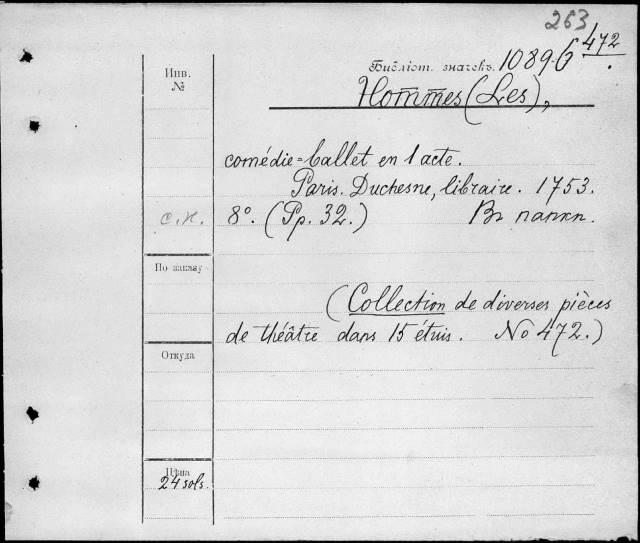 263
Инв.
№
Библіот. значекъ. 1089.б 472
Hommes (Les),
comédie=ballet en 1 acte.
Paris. Duchesne, libraire. 1753.
с.н. 8°. (Pp. 32.) Въ папкѣ.
По заказу
(Collection de diverses pièces
de théâtre dans 15 étuis. No 472.)
Откуда
Цѣна
24 sols.